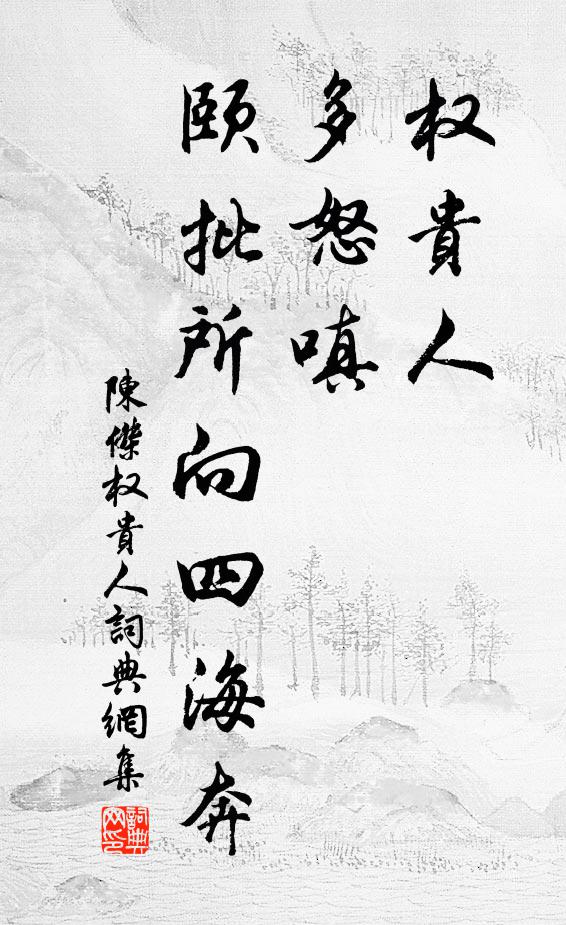 权貴人
多怒嗔
頤批所向四海奔
陳傑权貴人詞典網集
詞典网印